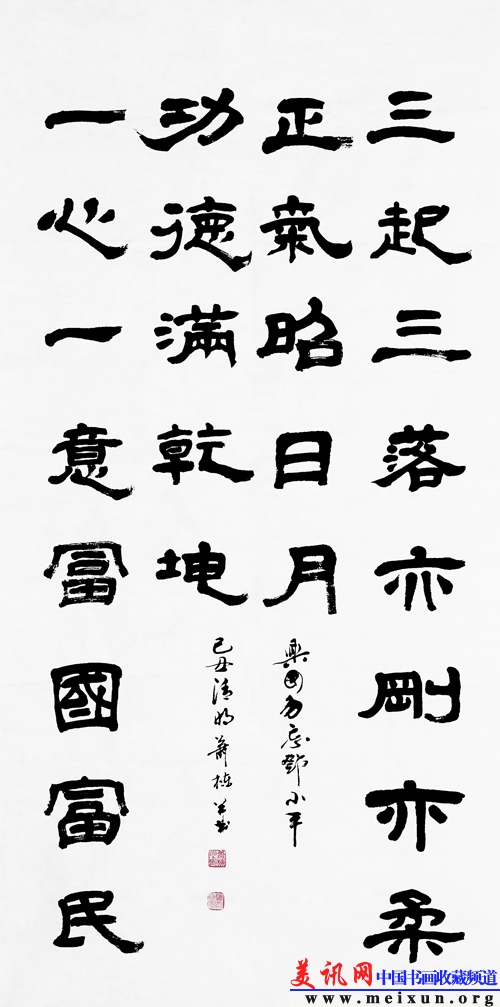 三起三落亦剛亦柔
正氣昭日月
興国勿忘鄧小平
一心一意富國富民
功德滿乾坤
己丑清明
美讯网 中国书画收藏频道
www.meixun.org